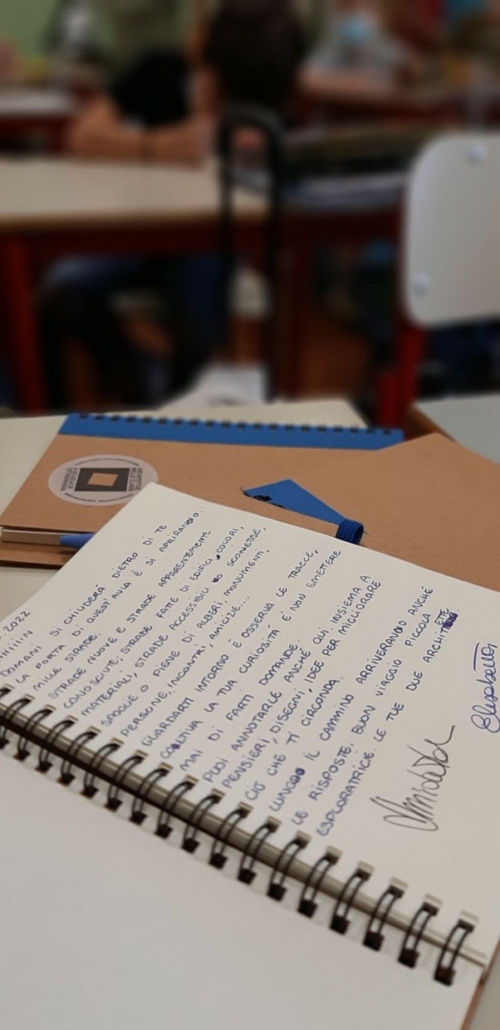 2022
DOMANI SI CHIUDERÀ DIETRO DI TE
LA PORTA DI QUEST'AULA E SI APRIRANNO
MILLE STRADE
STRADE NUOVE E STRADE APPARENTEMENTE
CONOSCIUTE, STRADE FATTE DI EDIFICI, COLORI,
MATERIALI, STRADE ACCESSIBILI O SCONNESSE,
SPOGLIE O PIENE DI ALBERI, MONUMENTI,
PERSONE, INCONTRI, AMICIZIE...
GUARDATI INTORNO E OSSERVA LE TRACCE,
COLTIVA LA TUA CURIOSITÀ E NON SMETTERE
MAI DI FARTI DOMANDE.
PUOI ANNOTARLE ANCHE QUI, INSIEME A
PENSIERI, DISEGNI, IDEE PER MIGLIORARE
CIÒ CHE TI CIRCONDA.
LUNGO IL CAMMINO ARRIVERANNO ANCHE
LE RISPOSTE. BUON VIAGGIO PICCOLA
ESPLORATRICE. LE TUE DUE ARCHITETTE
Elisabetta